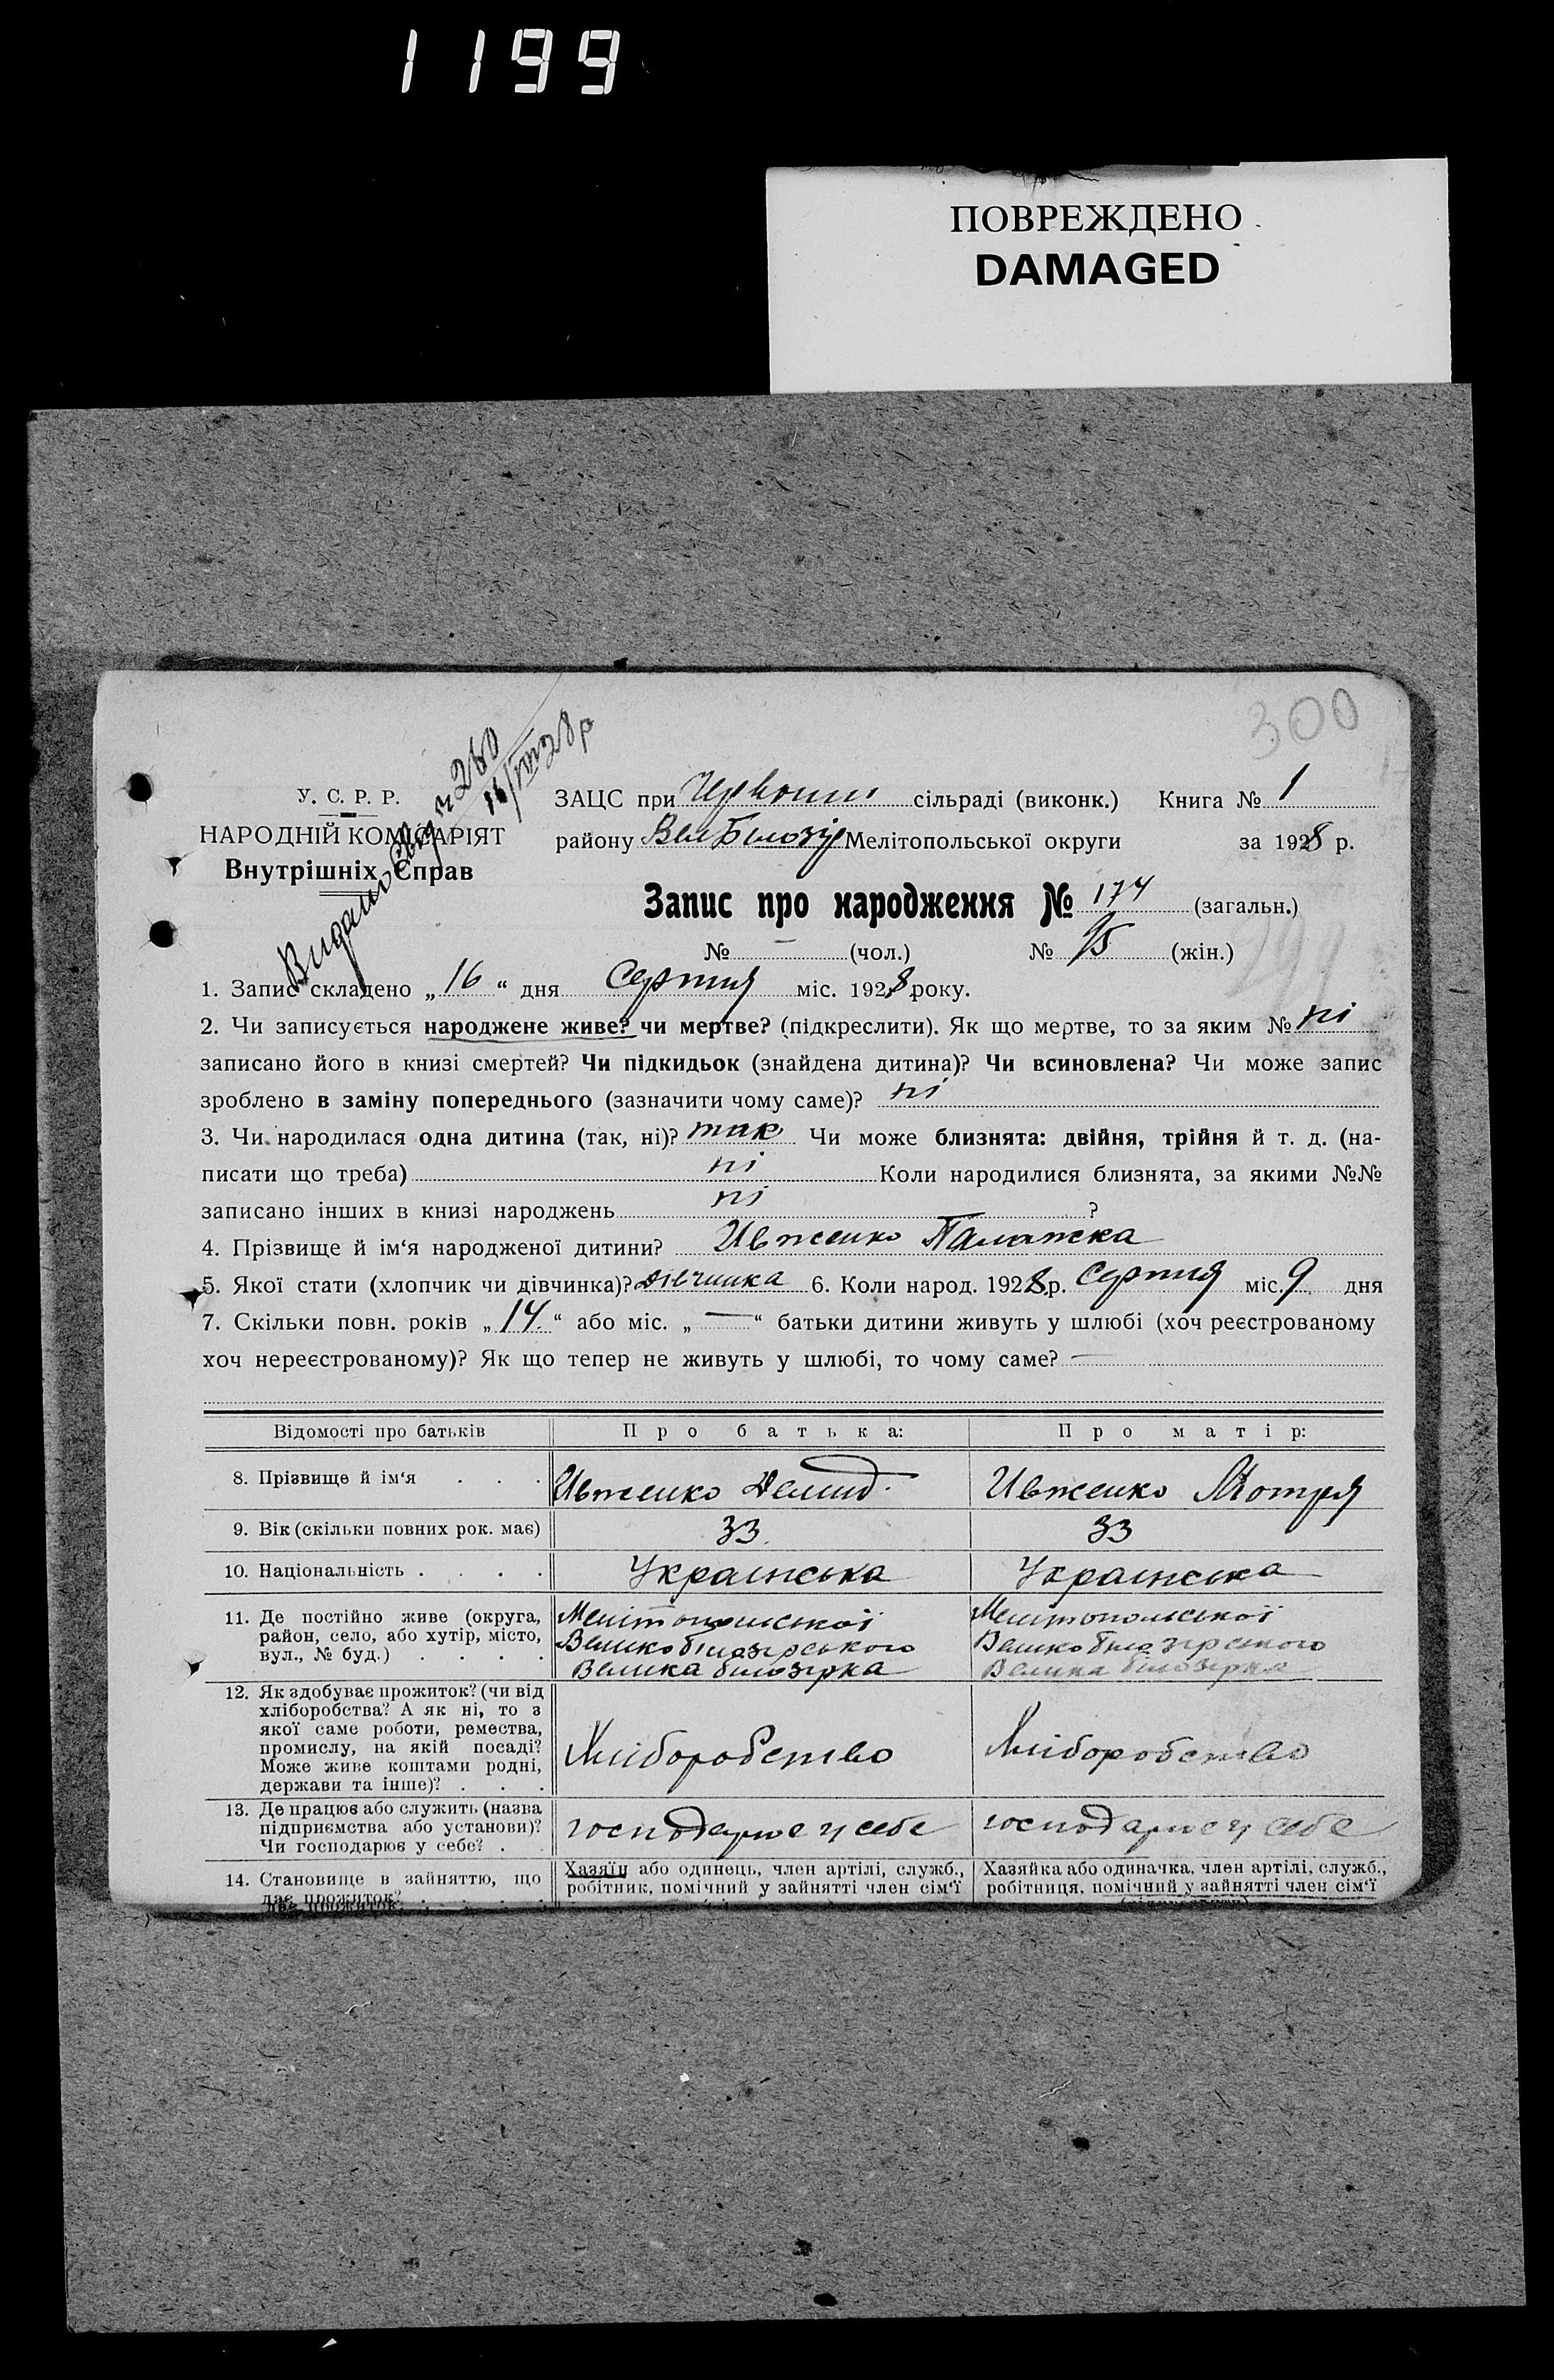 1199
ПОВРЕЖДЕНО
DAMAGED
300
Видано
260
16/VIII 28 р
У. С. Р. Р.
НАРОДНІЙ КОМІСАРІЯТ
Внутрішніх Справ
ЗАЦС при Червонні сільраді (виконк.) Книга № 1
району Вел Білозір Мелітопольської округи за 1928 р.
Запис про народження № 174 (загальн.)
№ — (чол.) № 95 (жін.)
299
1. Запис складено „ 16 “ дня Серпня міс. 1928 року.
2. Чи записується народжене живе? чи мертве? (підкреслити). Як що мертве, то за яким № ні
записано його в книзі смертей? Чи підкидьок (знайдена дитина)? Чи всиновлена? Чи може запис
зроблено в заміну попереднього (зазначити чому саме)? ні
3. Чи народилася одна дитина (так, ні)? так Чи може близнята: двійня, трійня й т. д. (на-
писати що треба) ні Коли народилися близнята, за якими №№
записано інших в книзі народжень ні ?
4. Прізвище й ім‘я народженої дитини? Ивженко Палажка
5. Якої стати (хлопчик чи дівчинка)? дівчинка 6. Коли народ. 1928 р. Серпня міс. 9 дня
7. Скільки повн. років „ 14 “ або міс. „ — “ батьки дитини живуть у шлюбі (хоч реєстрованому
хоч нереєстрованому)? Як що тепер не живуть у шлюбі, то чому саме? —
Відомості про батьків Про батька: Про матір:
8. Прізвище й ім‘я . . . Ивженко Демид. Ивженко Мотря
9. Вік (скільки повних рок. має) 33. 33
10. Національність . . . . Українська Українська
11. Де постійно живе (округа, Мелітопольської Мелітопольської
район, село, або хутір, місто, Великобілозірського Великобілозірського
вул., № буд.) . . . . Велика білозірка Велика білозірка
12. Як здобуває прожиток? (чи від
хліборобства? А як ні, то з
якої саме роботи, ремества,
промислу, на якій посаді? Хліборобство Хліборобство
Може живе коштами родні,
держави та інше)? . . .
13. Де працює або служить (назва
підприємства або установи)? господарює у себе господарює у себе
Чи господарює у себе? . .
14. Становище в зайняттю, що Хазяїн або одинець, член артілі, служб., Хазяйка або одиначка, член артілі, служб.,
дає прожиток? . . . . робітник, помічний у зайнятті член сім‘ї робітниця, помічний у зайнятті член сім‘ї